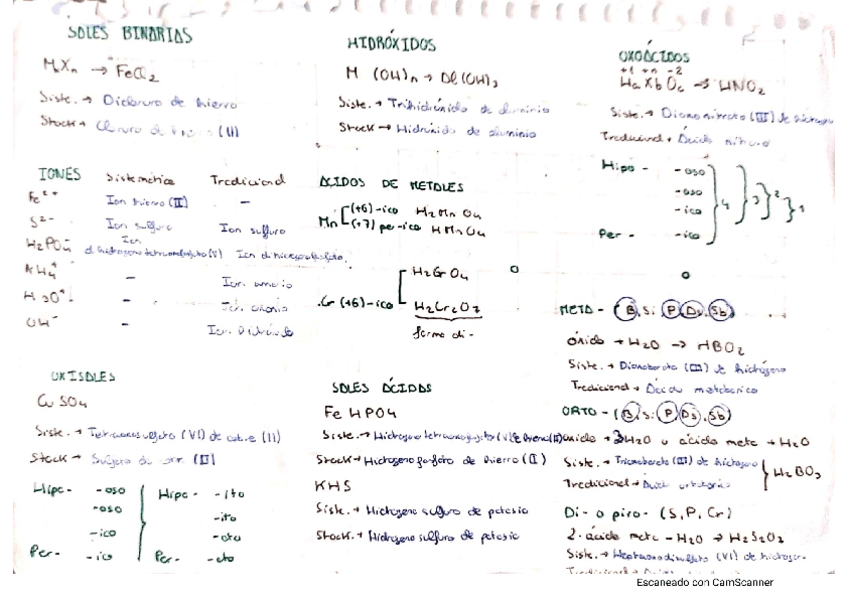 SALES BINARIAS
MₐXₙ → FeCl₂
Siste. → Dicloruro de hierro
Stock → Cloruro de hierro (II)
IONES Sistemática Tradicional
Fe²⁺ Ion hierro (II) -
S²⁻ Ion sulfuro Ion sulfuro
H₂PO₄⁻ Ion dihidrogenotetraoxofosfato (V) Ion dihidrogenofosfato
NH₄⁺ - Ion amonio
H₃O⁺ -
OH⁻ - Ion hidróxido
OXISALES
CuSO₄
Siste. → Tetraoxosulfato (VI) de cobre (II)
Stock → Sulfato de (II)
Hipo- -oso Hipo- -ito
-oso -ito
-ico -ato
Per- -ico Per- -ato
HIDRÓXIDOS
M (OH)ₙ → Al(OH)₃
Siste. → Trihidróxido de aluminio
Stock → Hidróxido de aluminio
ÁCIDOS DE METALES
Mn (+6)-ico H₂MnO₄
(+7) per-ico HMnO₄
Cr (+6)-ico H₂CrO₄
H₂Cr₂O₇
forma di-
SALES ÁCIDAS
FeHPO₄
Siste. → Hidrogenotetraoxofosfato (V) de hierro (II)
Stock → Hidrogenofosfato de hierro (II)
KHS
Siste. → Hidrogenosulfuro de potasio
Stock. → Hidrogenosulfuro de potasio
OXOÁCIDOS
+1 +n -2
HₐXbOc → HNO₂
Siste. → Dioxonitrato (III) de hidrógeno
Tradicional → Ácido nitroso
Hipo- -oso
-oso
-ico
Per- -ico
4 3 2 1
META- (B, Si, P, As, Sb)
óxido + H₂O → HBO₂
Siste. → Dioxoborato (III) de hidrógeno
Tradicional → Ácido metabórico
ORTO- (B, Si, P, As, Sb)
óxido + 3H₂O o ácido meta + H₂O
Siste. → Trioxoborato (III) de hidrógeno
Tradicional → Ácido ortobórico
H₂BO₃
Di- o piro- (S, P, Cr)
2·ácido meta - H₂O → H₂S₂O₇
Siste. → Heptaoxodisulfato (VI) de hidrógeno
Tradicional →
Escaneado con CamScanner